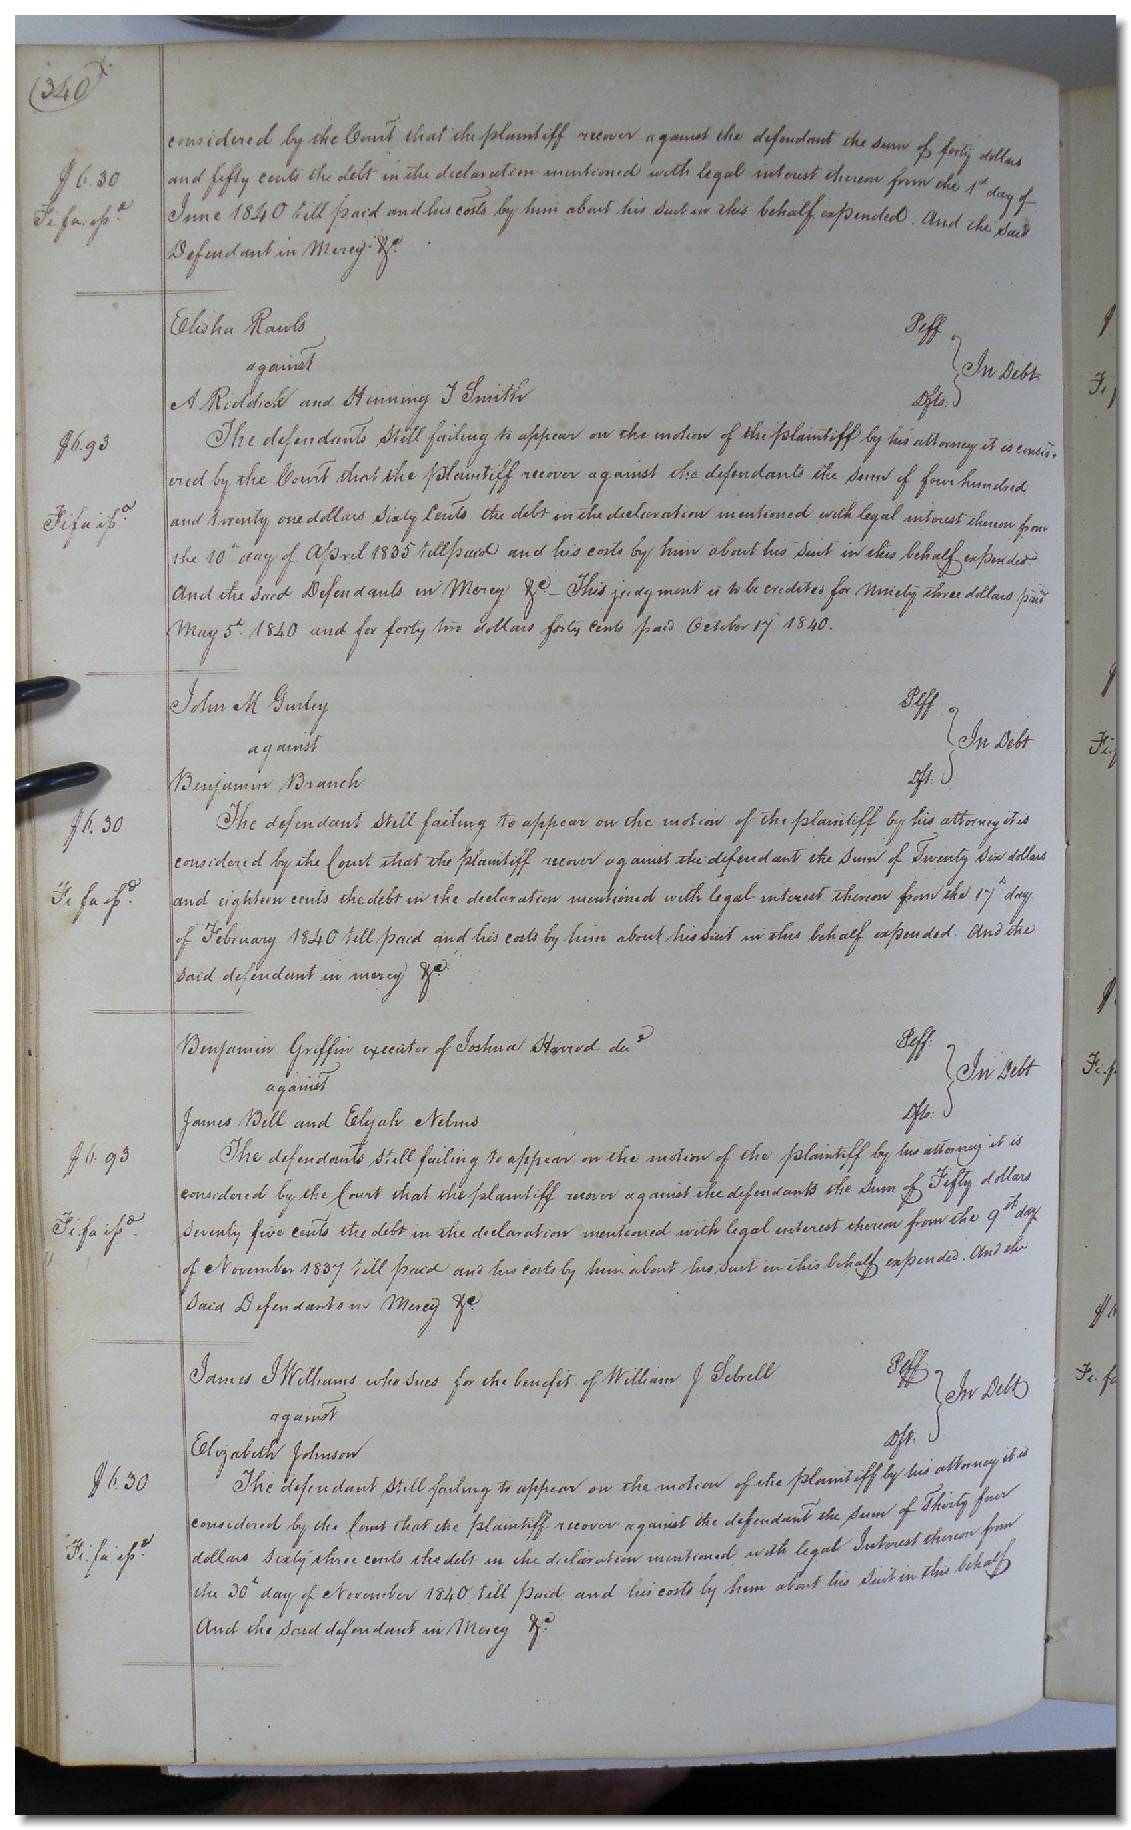 (340)
considered by the Court that the plaintiff recover against the defendant the sum of forty dollars
$6.30
and fifty cents the debt in the declaration mentioned with legal interest thereon from the 1st day of
Fi. fa. issd.
June 1840 till paid and his costs by him about his suit in this behalf expended. And the said
Defendant in Mercy &c.
Elisha Rawls Plff
against In Debt
A Riddick and Henning T Smith Dfts.
The defendants still failing to appear on the motion of the plaintiff by his attorney it is consid-
$6.93
ered by the Court that the plaintiff recover against the defendants the sum of four hundred
and twenty one dollars sixty Cents the debt in the declaration mentioned with legal interest thereon from
Fi fa issd.
the 10th day of April 1835 till paid and his costs by him about his suit in this behalf expended
And the said Defendants in Mercy &c - This judgment is to be credited for Ninety three dollars paid
May 5th. 1840 and for forty two dollars forty cents paid October 17 1840.
John M Gurley Plff
against In Debt
Benjamin Branch Dft.
The defendant still failing to appear on the motion of the plaintiff by his attorney it is
$6.30
considered by the Court that the plaintiff recover against the defendant the sum of Twenty six dollars
and eighteen cents the debt in the declaration mentioned with legal interest thereon from the 17th day
Fi fa issd.
of February 1840 till paid and his costs by him about his suit in this behalf expended. And the
said defendant in mercy &c.
Benjamin Griffin executor of Joshua Harrod decd Plff.
against In Debt
James Bell and Elijah Nelms Dfts.
The defendants still failing to appear on the motion of the plaintiff by his attorney it is
$6.93
considered by the Court that the plaintiff recover against the defendants the sum of Fifty dollars
seventy five cents the debt in the declaration mentioned with legal interest thereon from the 9th day
Fi. fa issd.
of November 1837 till paid and his costs by him about his suit in this behalf expended. And the
said Defendants in Mercy &c.
James J Williams who sues for the benefit of William J Sebrell Plff
against In Debt
Elizabeth Johnson Dft.
The defendant still failing to appear on the motion of the plaintiff by his attorney it is
$6.30
considered by the Court that the plaintiff recover against the defendant the sum of Thirty four
dollars sixty three cents the debt in the declaration mentioned with legal Interest thereon from
Fi. fa issd.
the 30th day of November 1840 till paid and his costs by him about his suit in this behalf
And the said defendant in Mercy &c.